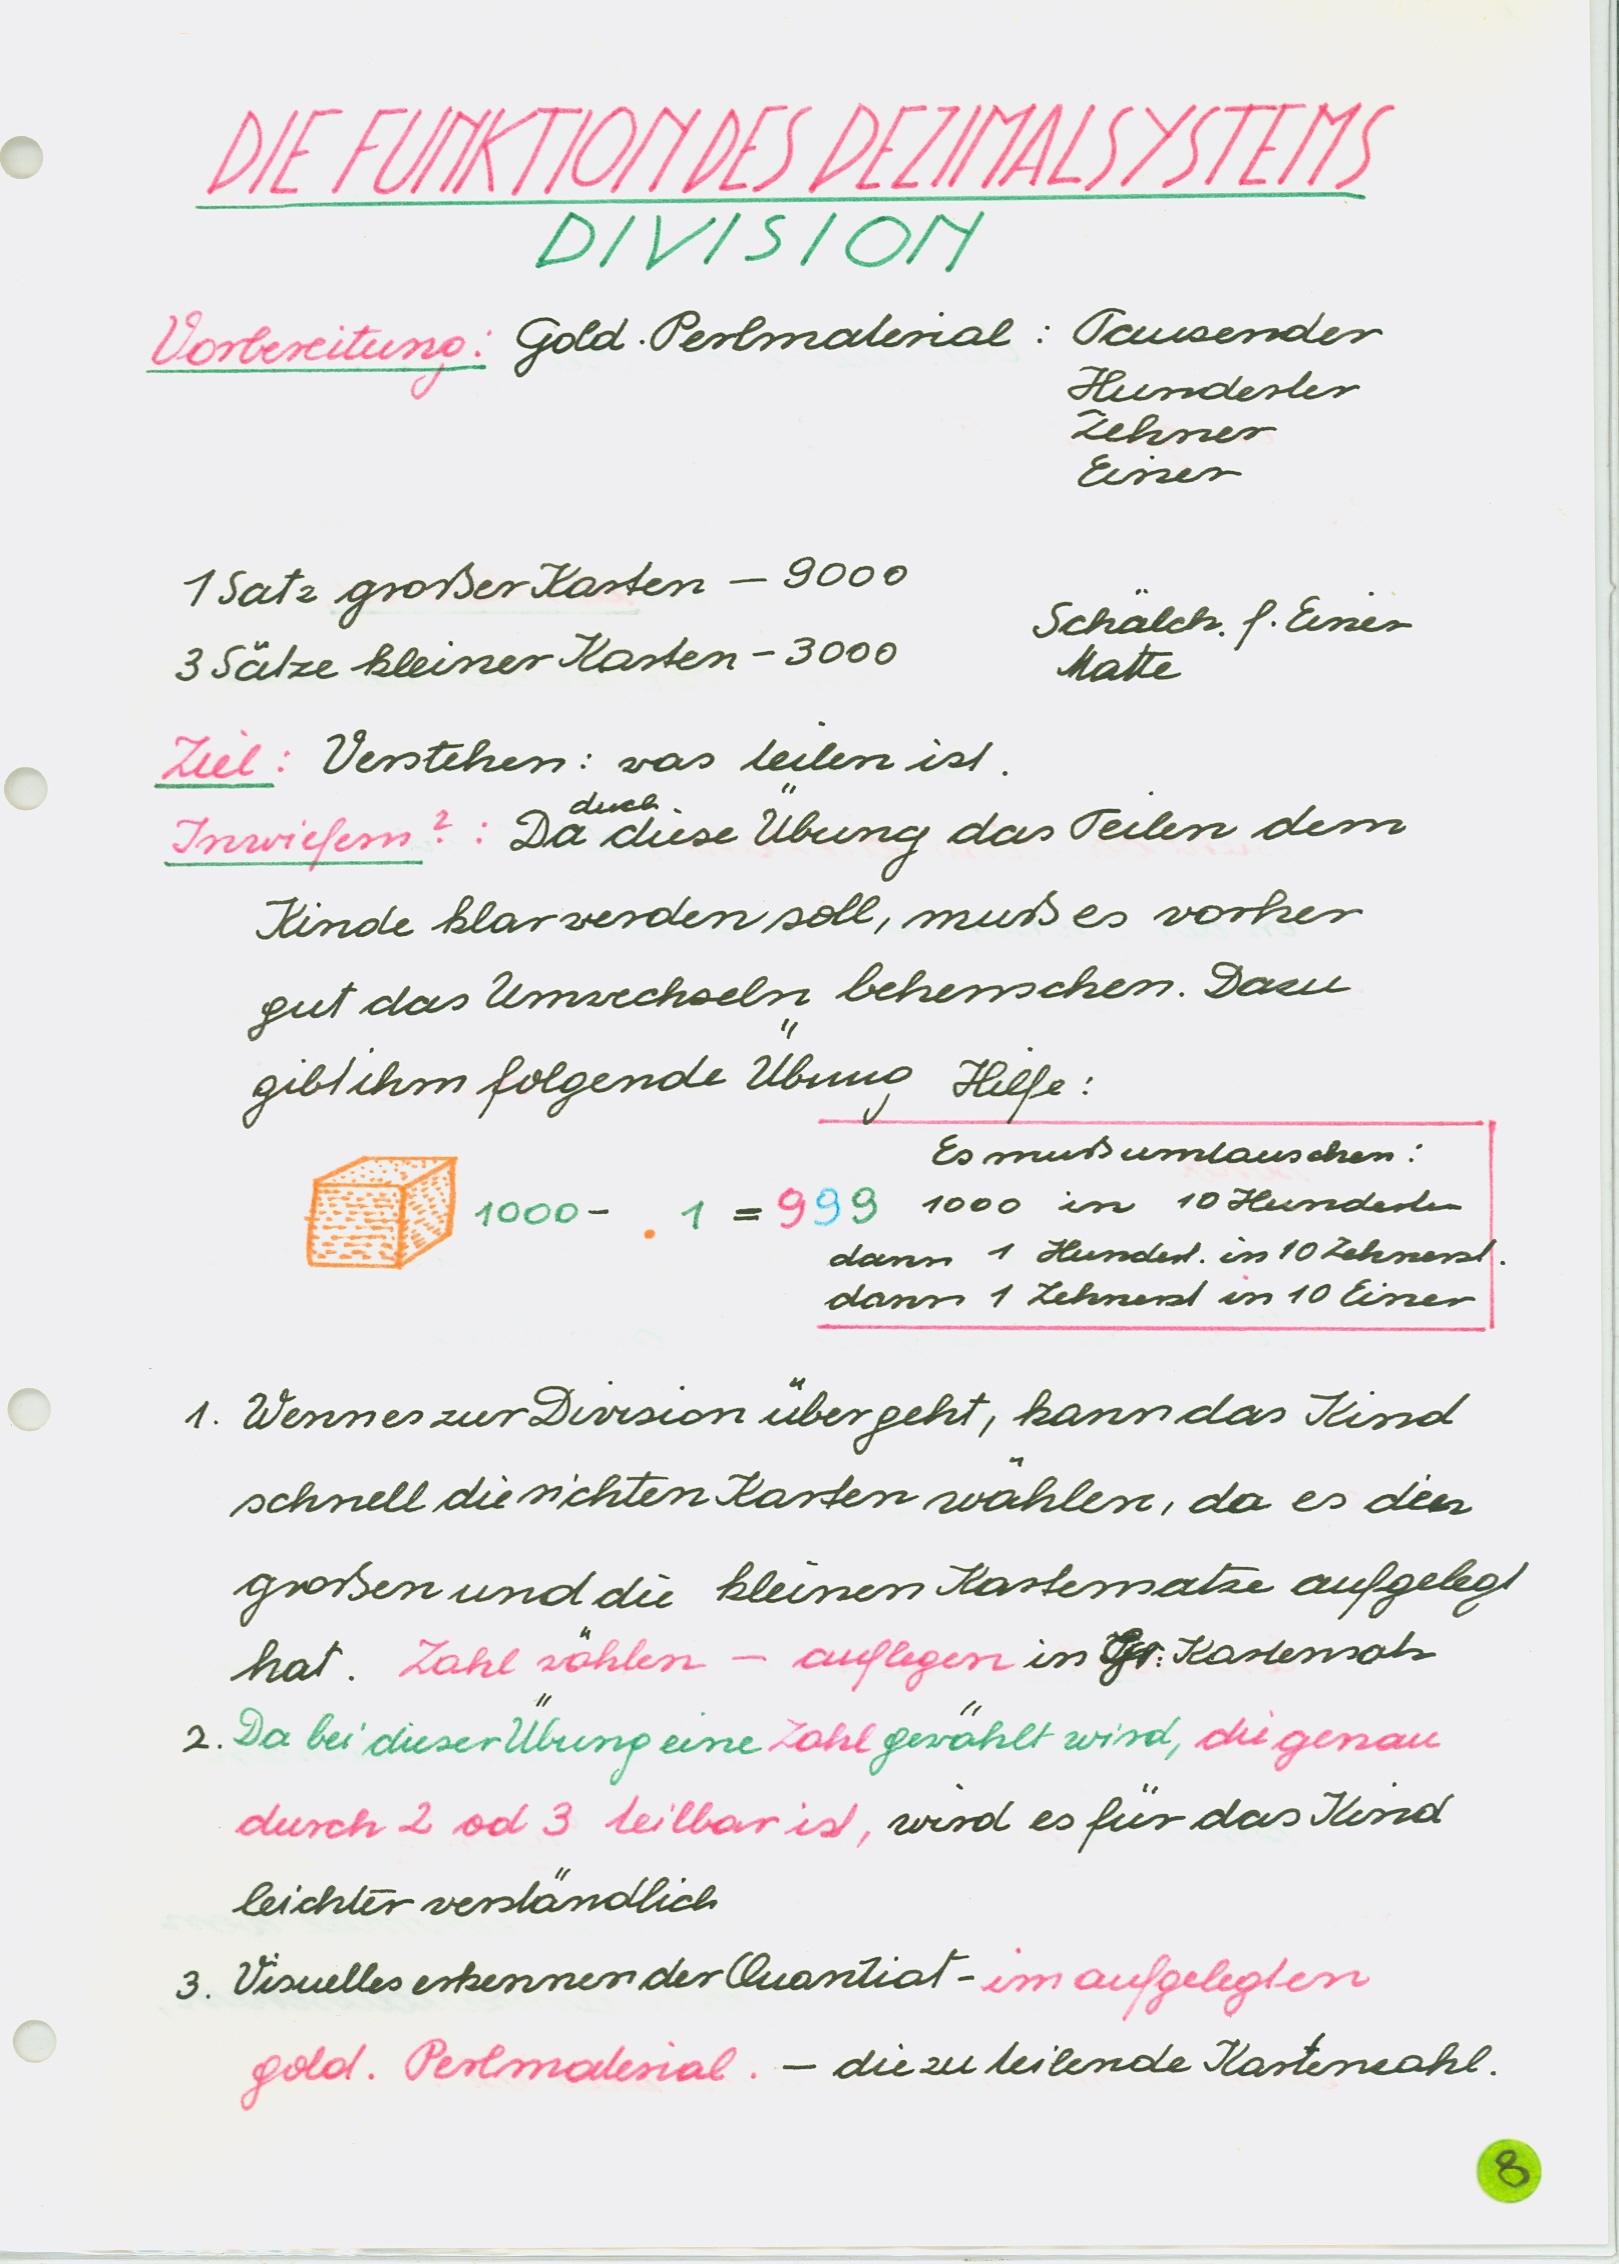 DIE FUNKTION DES DEZIMALSYSTEMS
DIVISION
Vorbereitung: Gold. Perlmaterial: Tausender
Hunderter
Zehner
Einer
1 Satz großer Karten – 9000
3 Sätze kleiner Karten – 3000
Schälch. f. Einer
Matte
Ziel: Verstehen: was teilen ist.
Inwiefern?: Da durch diese Übung das Teilen dem
Kinde klar werden soll, muß es vorher
gut das Umwechseln beherrschen. Dazu
gibt ihm folgende Übung Hilfe:
Es muß umtauschen:
1000 – . 1 = 999
1000 in 10 Hunderter
dann 1 Hundert. in 10 Zehnerst.
dann 1 Zehnerst in 10 Einer
1. Wenn es zur Division übergeht, kann das Kind
schnell die richten Karten wählen, da es den
großen und die kleinen Kartensatze aufgelegt
hat. Zahl wählen – auflegen in Gr. Kartensatz
2. Da bei dieser Übung eine Zahl gewählt wird, die genau
durch 2 od 3 teilbar ist, wird es für das Kind
leichter verständlich
3. Visuelles erkennen der Quantiat – im aufgelegten
gold. Perlmaterial. – die zu teilende Kartenzahl.
8